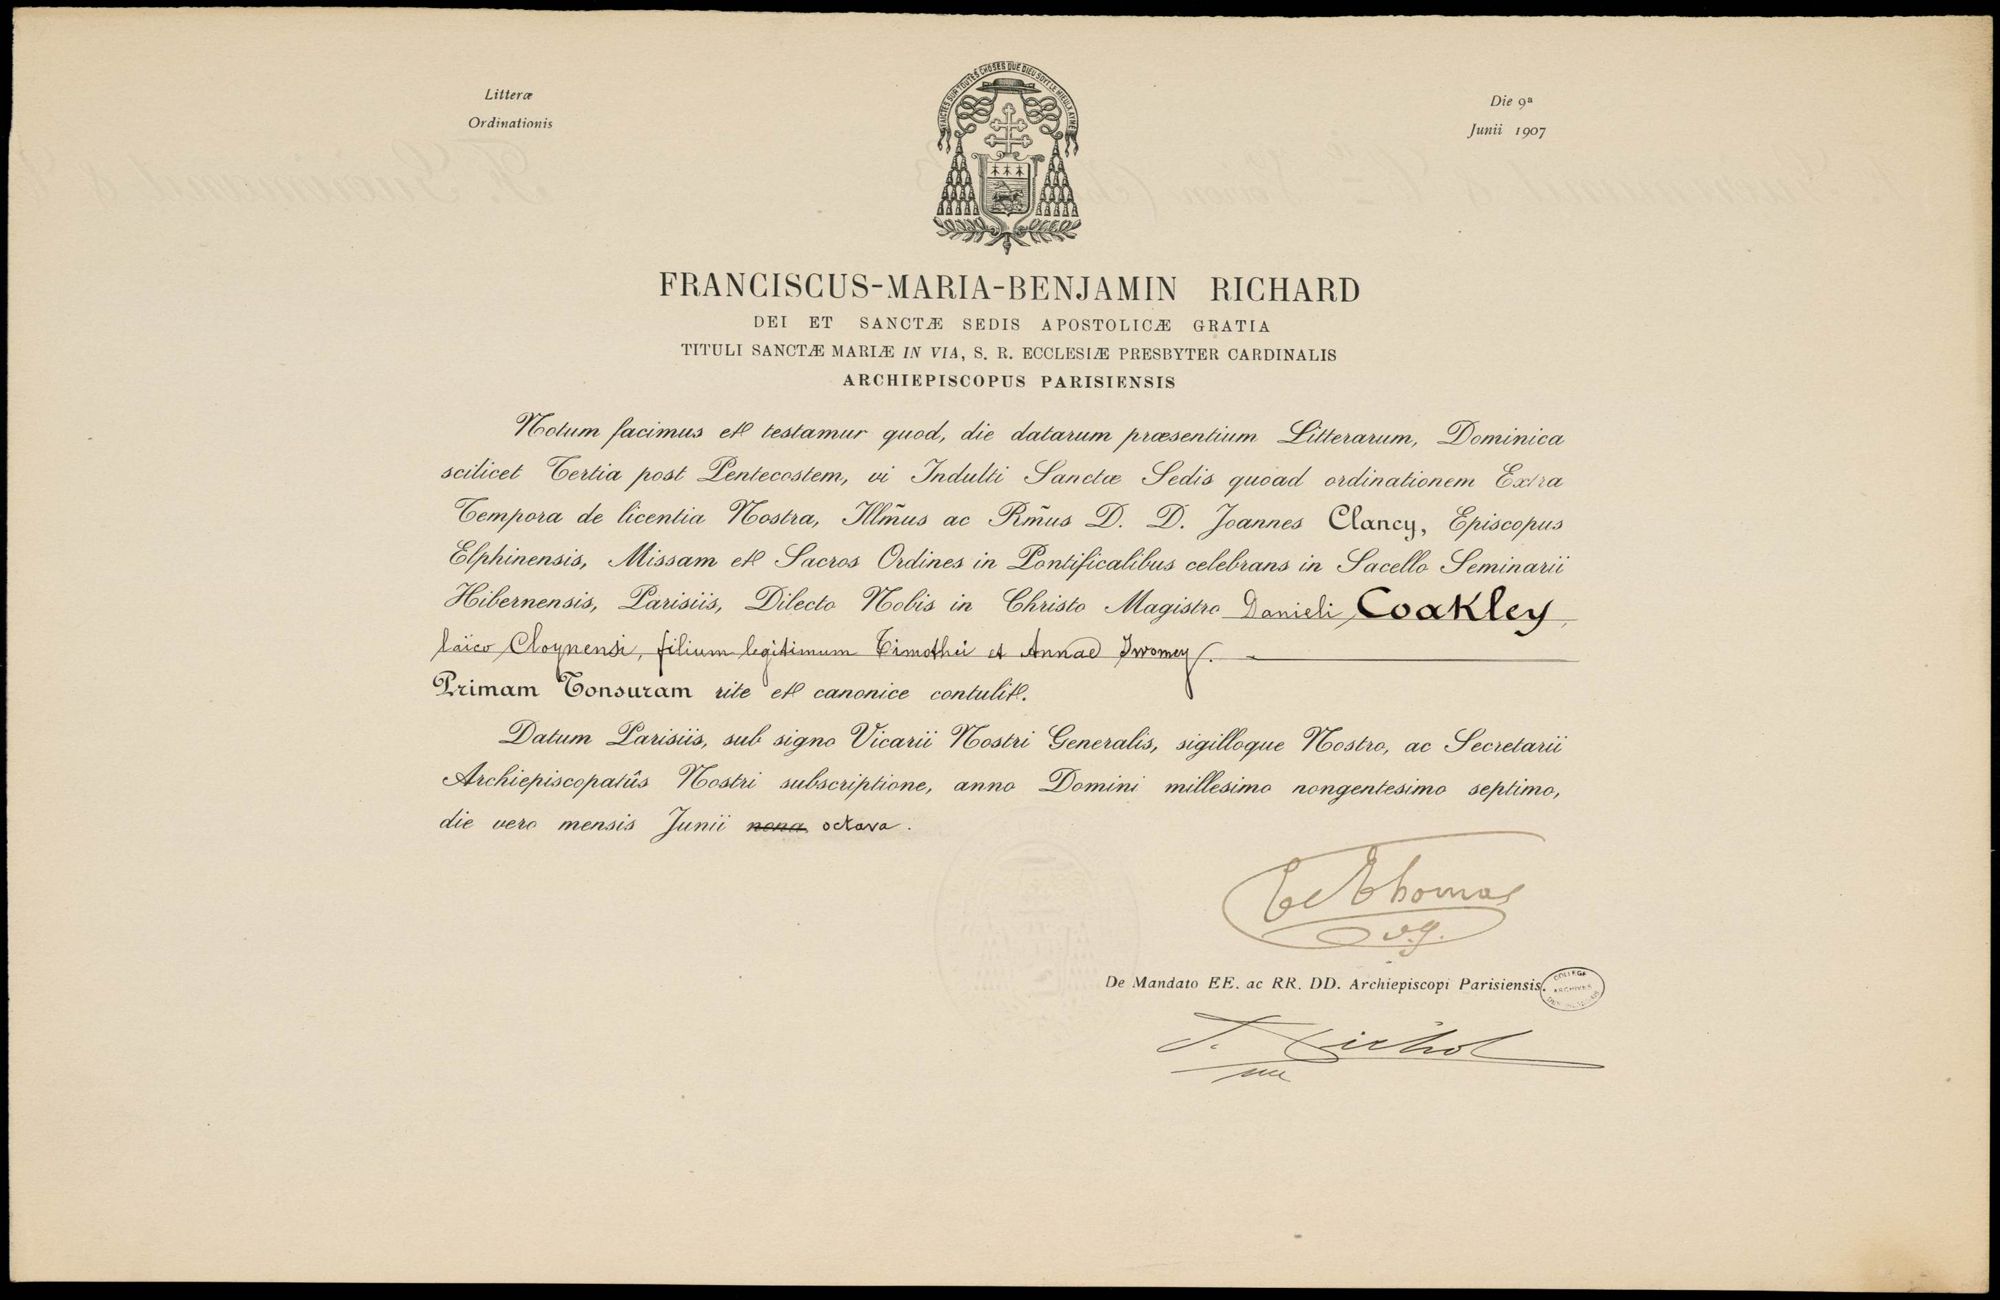 Litteræ
Ordinationis
FAICTES SUR TOUTES CHOSES QUE DIEU SOYT LE MIEULX AYMÉ
Die 9ª
Junii 1907
FRANCISCUS-MARIA-BENJAMIN RICHARD
DEI ET SANCTÆ SEDIS APOSTOLICÆ GRATIA
TITULI SANCTÆ MARIÆ IN VIA, S. R. ECCLESIÆ PRESBYTER CARDINALIS
ARCHIEPISCOPUS PARISIENSIS
Notum facimus et testamur quod, die datarum præsentium Litterarum, Dominica
scilicet Tertia post Pentecostem, vi Indulti Sanctæ Sedis quoad ordinationem Extra
Tempora de licentia Nostra, Illm̃us ac Rm̃us D. D. Joannes Clancy, Episcopus
Elphinensis, Missam et Sacros Ordines in Pontificalibus celebrans in Sacello Seminarii
Hibernensis, Parisiis, Dilecto Nobis in Christo Magistro Danieli Coakley,
laïco Cloynensi, filium legitimum Timothei et Annae Twomey.
Primam Tonsuram rite et canonice contulit.
Datum Parisiis, sub signo Vicarii Nostri Generalis, sigilloque Nostro, ac Secretarii
Archiepiscopatûs Nostri subscriptione, anno Domini millesimo nongentesimo septimo,
die vero mensis Junii nona octava.
Thomas
v.g.
De Mandato EE. ac RR. DD. Archiepiscopi Parisiensis.
COLLEGE
ARCHIVES